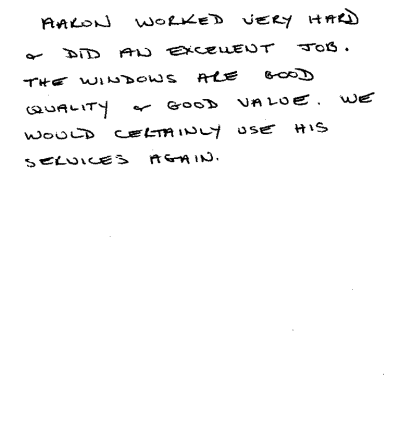 AARON WORKED VERY HARD
& DID AN EXCELLENT JOB.
THE WINDOWS ARE GOOD
QUALITY & GOOD VALUE. WE
WOULD CERTAINLY USE HIS
SERVICES AGAIN.